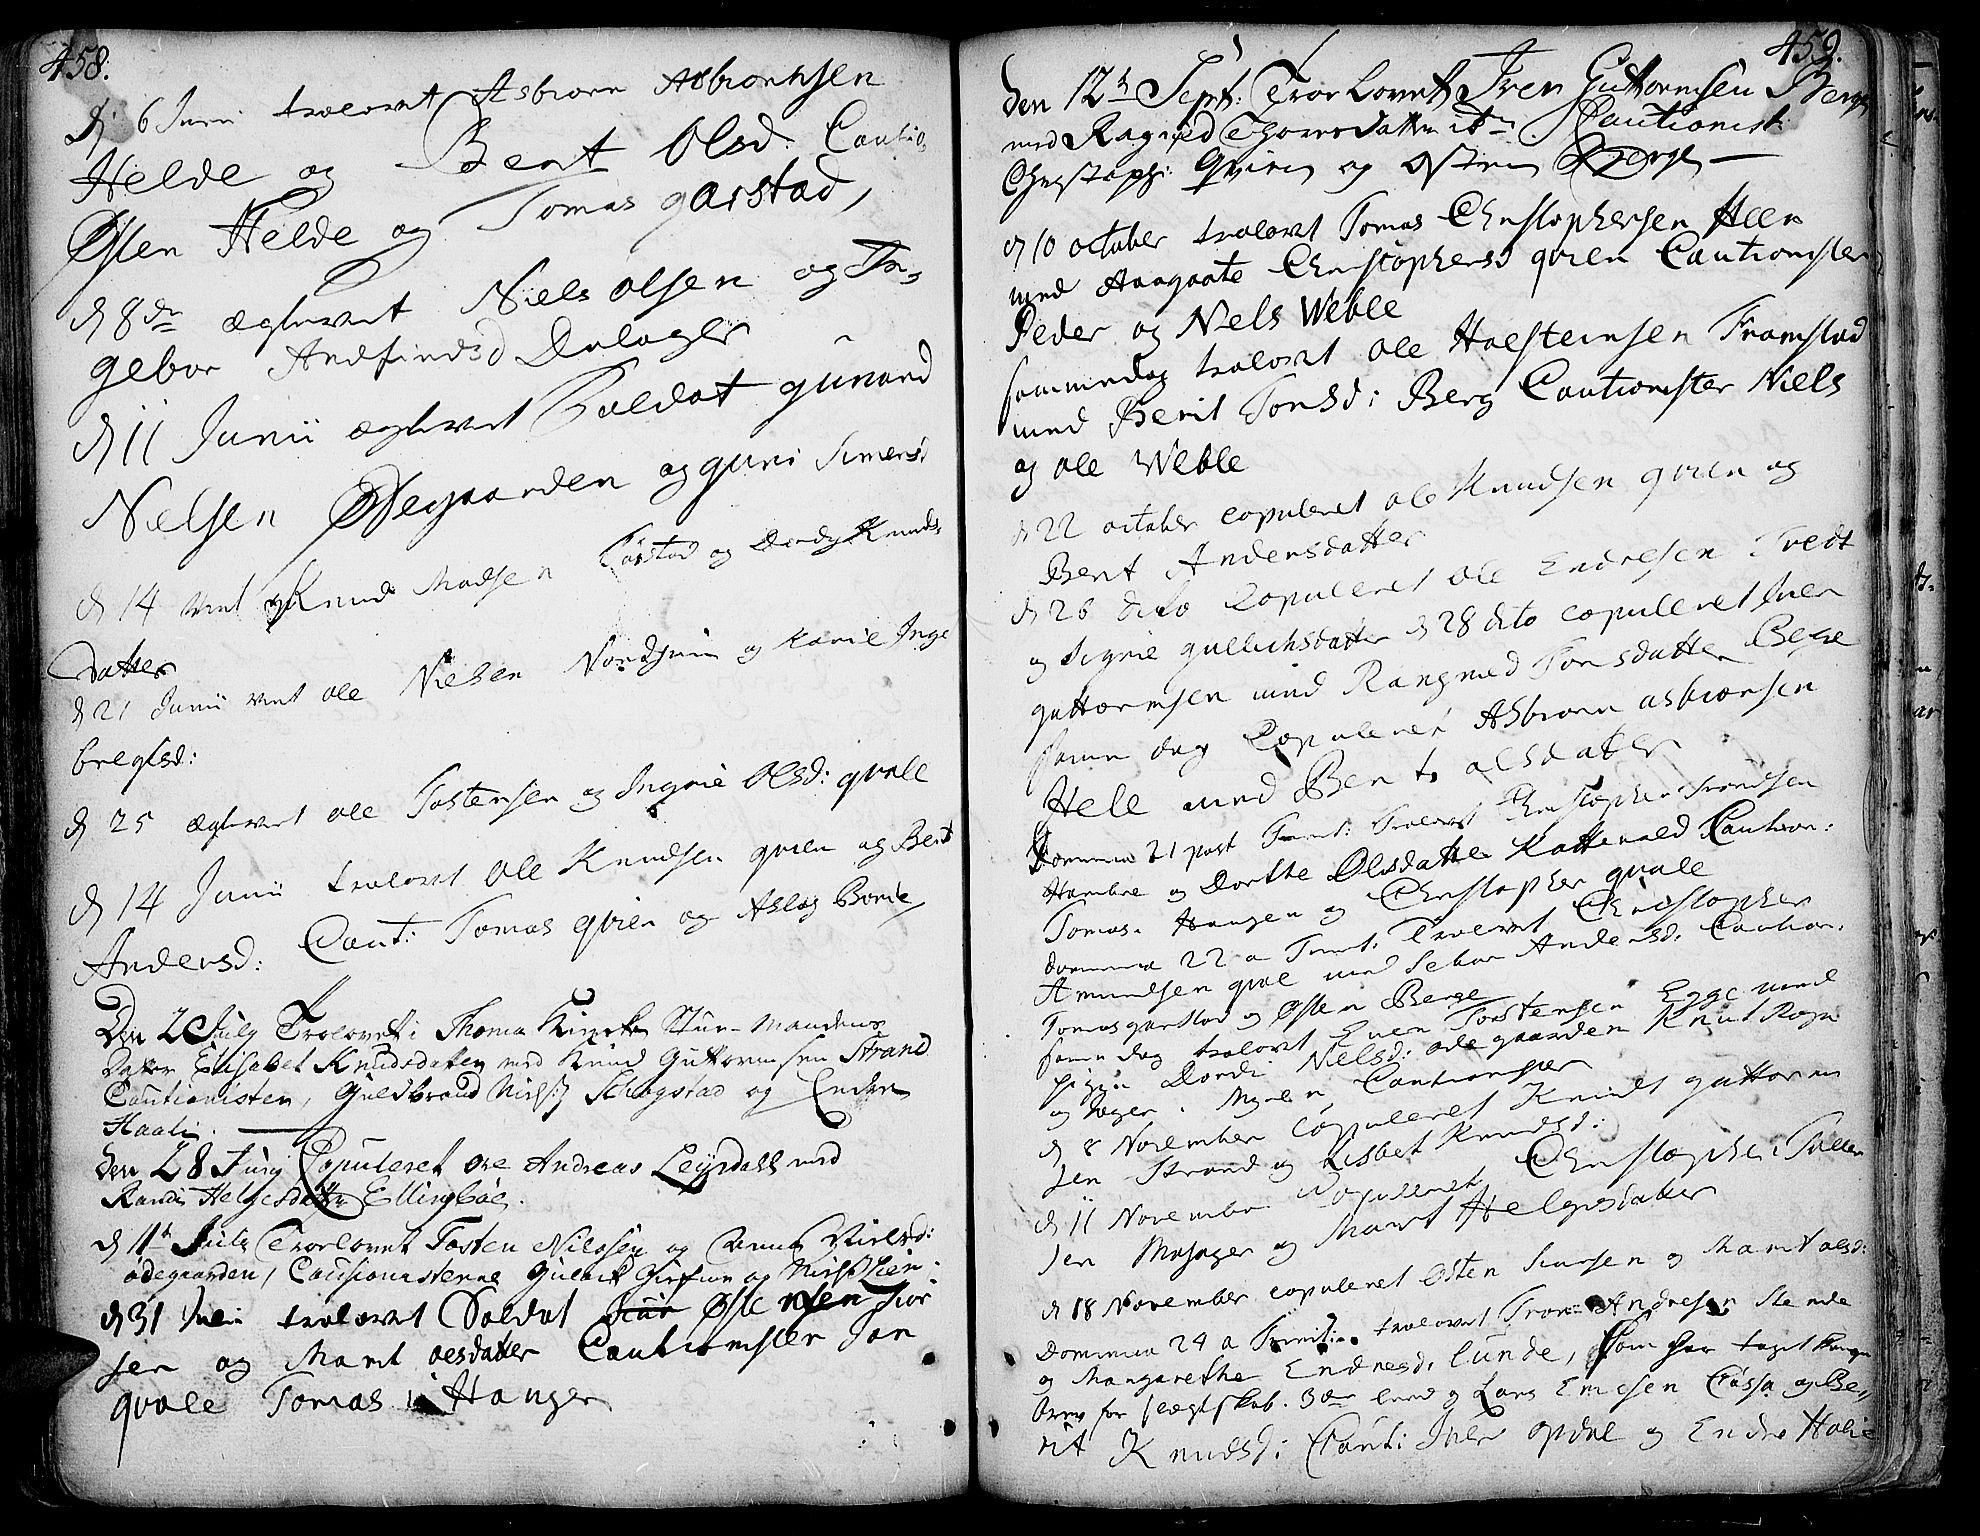 458.
d 6 Junii trolovet Asbiorn Asbiornsen
Helde og Berit Olsd: Cautio,
Østen Helde og Tomas garstad,
d 8de ægtevit Niels Olsen og In=
gebor Andfindsd Dalager
d 11 Junii ægtevit Soldat gunand
Nielsen Ødegaarden og guri Simensd
d 14 viet Knud Madsen Tørstad og Dordy Knuds
datter
d 21 Junii viet ole Nielsen Nordhuus og Karie Inge
bregtsd:
d 25 ægtevit ole Tostensen og Ingrie Olsd: qvale
d 14 Junii trolovet Ole Knudsen qvien og Berit
Andersd: Caut: Tomas qvien og Aslag Borde
Den 2 July Trolovet: Thoma Stur-Mandens
Datter Elisabet Knudsdatter med Knud Guttormsen Strand
Cautionisten, Guldbrand Niels: Schogstad og Endre
Haali.
den 28 Juny Copuleret Ole Andreas Leyrdahl med
Randi Helgesdatter Ellingbøe.
d 11t July Trorlovet Tosten Nilssen og Anne Nielsd:
ødegaarden, Causionisterne Gulbrik og Niels
d 31 Juli trolovet Soldat Østensen
sen og Marit olsdatter Cautionister Jon
qvale Tomas Hanger
459.
den 12t Sept: Trorlovet Iver Guttormsen Berge
med Ragnild Thorersdatter Cautionist:
Christoph: Qvien og Østen Berge
d 10 october trolovet Tomas Christophersen Heen
med Aagaate Christophersd qvien Cautionister
Peder og Niels Weble
sammedag trolovet Ole Halsteinsen Framstad
med Berit Tonsd: Berg Cautionister Niels
og ole Weble
d 22 october copuleret ole Knudsen qvien og
Berit Andersdatter
d 26 dito Copuleret Ole Endresen Tvedt
og Sigrie gullichsdatter d 28 dito copuleret Iver
guttormsen med Rangnild Tonsdatter Berge
samme dag Copuleret Asbiorn asbiørnsen
Hele med Berit olsdatter
Dominica 21 post Trinit: Trolovet Christopher Trondsen
Hambre og Dorthe Olsdatter Kattevold Caution:
Tomas Hangen og Christopher qvale
Dominica 22 a Trinit. Trolovet Christopher
Amundsen qvale med Sebor Andersd. Caution:
Tomas garstad og Østen Berge
samme dag trolovet Even Torstensen Egge med
pigen Dordi Nielsd: ødegaarden Knut Rogn
og Asger Myren Cautionister
d 8 November copuleret Knudt guttorm
sen Strand og Lisbet Knudsd:
d 11 November Copuleret Christopher Tolle
sen Mosager og Marit Helgesdatter
d 18 November copuleret Østen Siursen og Marit olsd:
Dominica 24 a Trinit: trolovet Tron Andresen Stende
og Margarethe Endresd: Lunde, som har taget Konge
brev for slægtskab. 3die leed og Lars Ericsen Cøssa og Be,,
rit Knudsd: Cauti: Iver opdal og Endre Halie